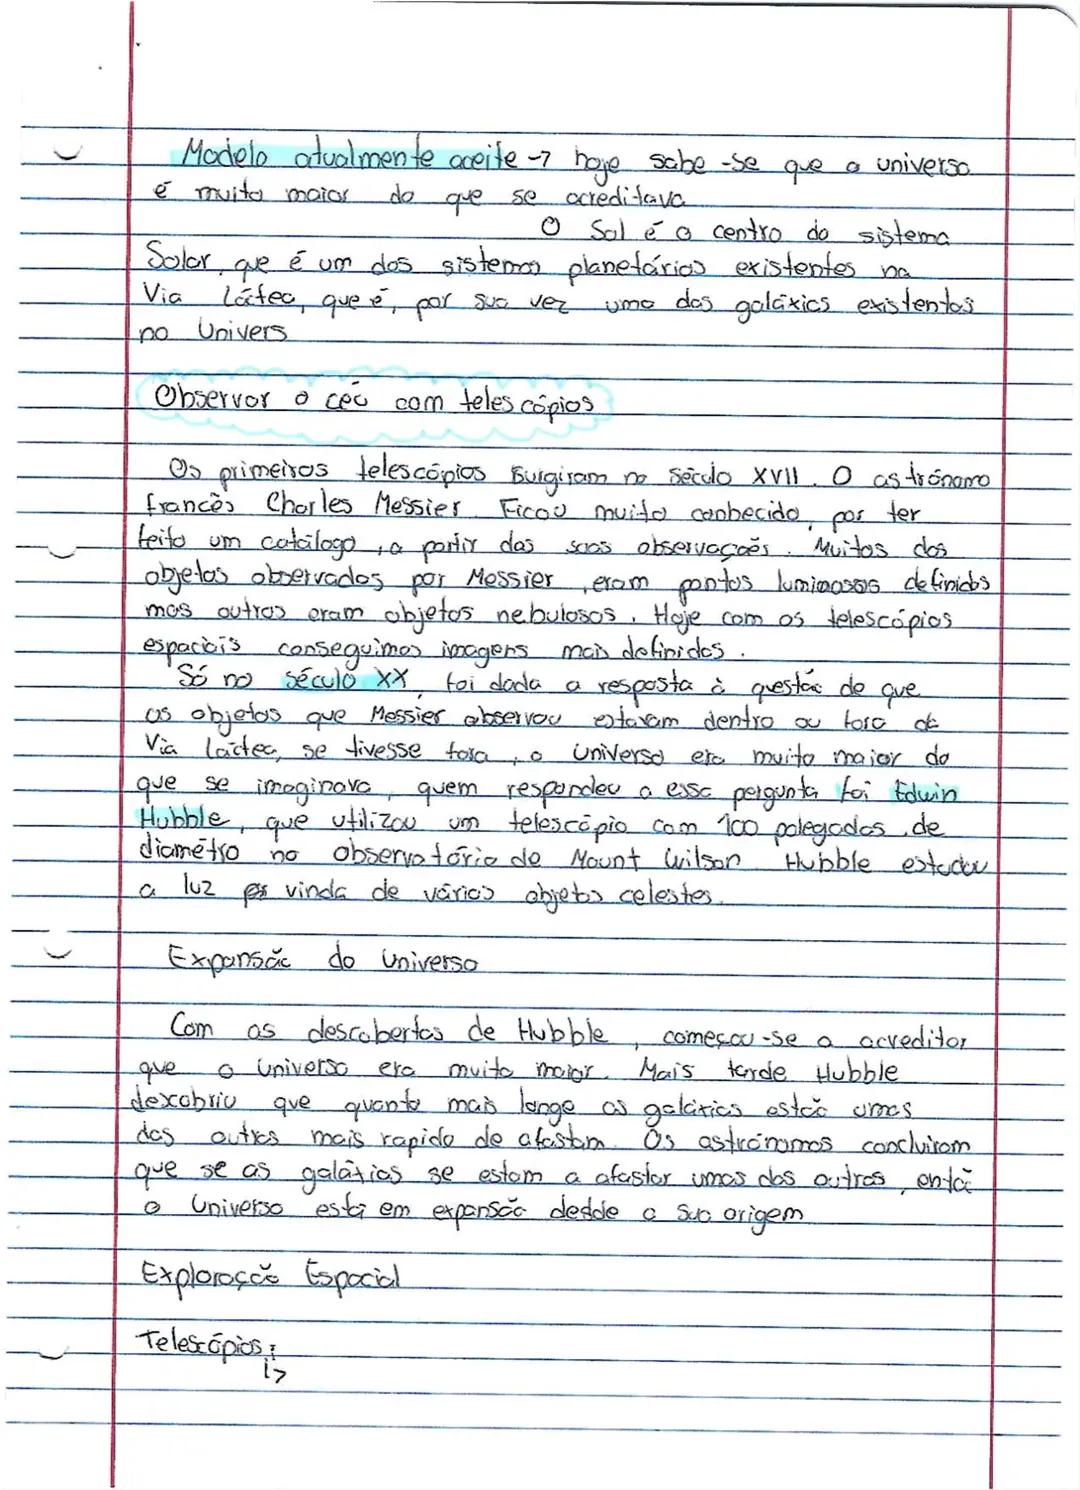 Modelo atualmente aceite -> hoje sabe-se que o universo
é muito maior do que se acreditava
O Sol é o centro do sistema
Solar, que é um dos sistemas planetários existentes na
Via Láctea, que é, por sua vez uma das galáxics existentos
no Univers
Observar o céu com telescópios
Os primeiros telescópios surgiram no século XVII. O astrónomo
francês Charles Messier Ficou muito conhecido, por ter
feito um catálogo, a partir das suas observações. Muitos dos
objetos observados por Messier, eram pontos luminosos definidos
mas outros eram objetos nebulosos. Hoje com os telescópios
espaciais conseguimos imagens mais definidas.
Só no século XX foi dada a resposta à questão de que
os objetos que Messier observou estavam dentro ou fora da
Via láctea, se tivesse fora, o universo era muito maior do
que se imaginava, quem respondeu a essa pergunta foi Edwin
Hubble, que utilizou um telescópio com 100 polegadas de
diamétro no observatório de Mount Wilson Hubble estudou
a luz vinda de vários objetos celestes.
Expansão do Universo
Com as descobertas de Hubble, começou-se a acreditar
que o universo era muito maior. Mais tarde Hubble
descobriu que quanto mais longe as galáxias estão umas
das outras mais rapido de afastam. Os astrónomos concluiram
que se as galátias se estam a afastar umas das outras, então
o Universo está em expansão dedde a sua origem
Exploração Espacial
Telescópios:
↳